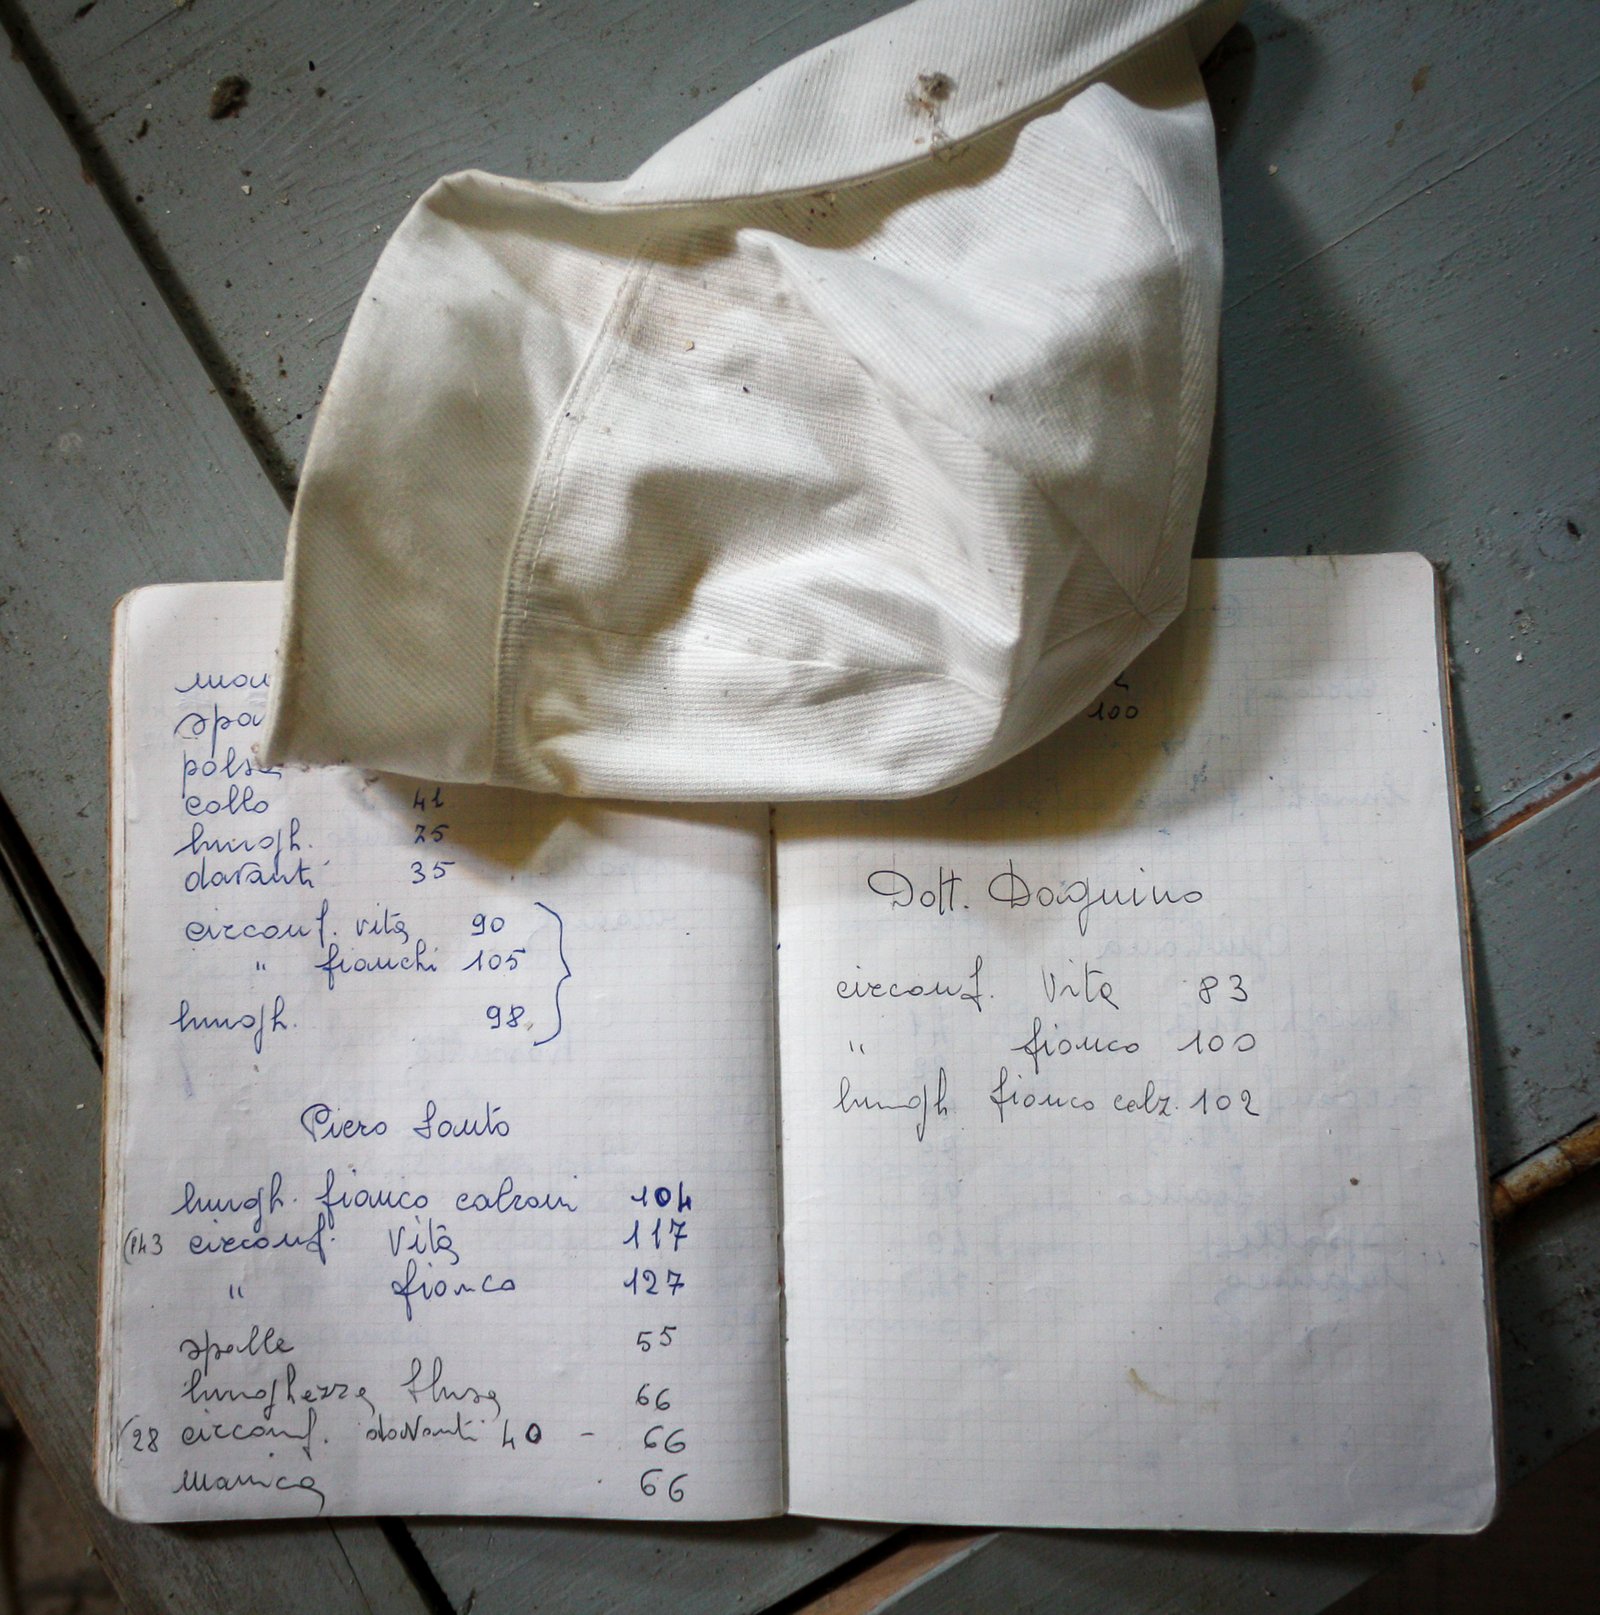 polsa
collo 41
lungh. 75
davanti 35
circonf. vita 90
" fianchi 105
lungh. 98
Piero Santo
lungh. fianco calzoni 104
circonf. Vita 117
" fianco 127
spalle 55
lunghezza blusa 66
(28 circonf. davanti 40 - 66
manica 66
100
Dott. Daquino
circonf. Vita 83
" fianco 100
lungh fianco calz. 102